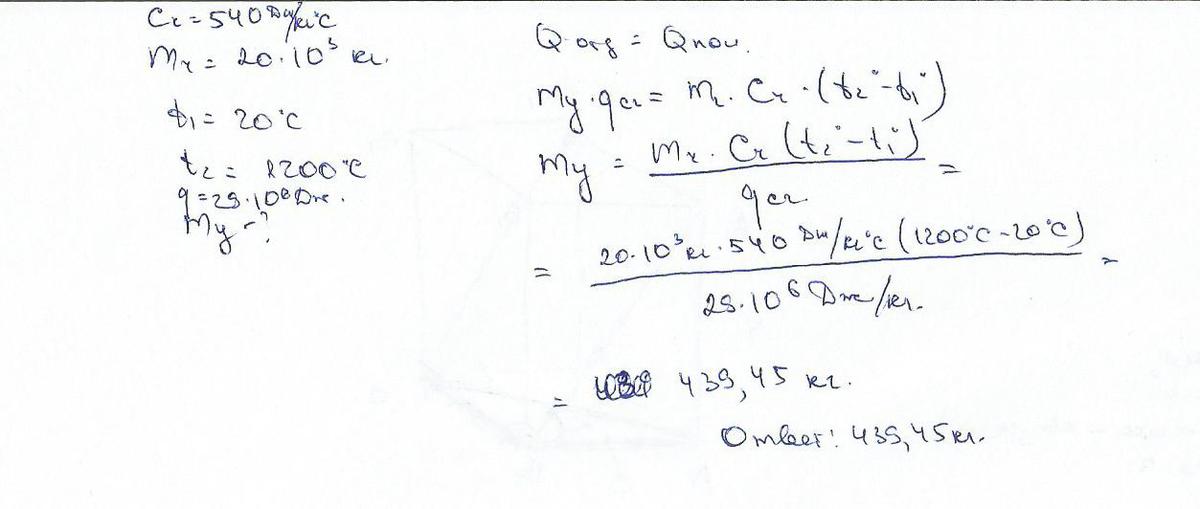 Cч = 540 Дж/кг°C
mч = 20·10³ кг.
t₁ = 20°C
t₂ = 1200°C
q = 29·10⁶ Дж.
my - ?
Qотд = Qпол.
my·qсг = mч·Cч·(t₂° - t₁°)
my = mч·Cч (t₂° - t₁°) / qсг =
= 20·10³ кг·540 Дж/кг°C (1200°C - 20°C) / 29·10⁶ Дж/кг. =
= 439,45 кг.
Ответ: 439,45 кг.